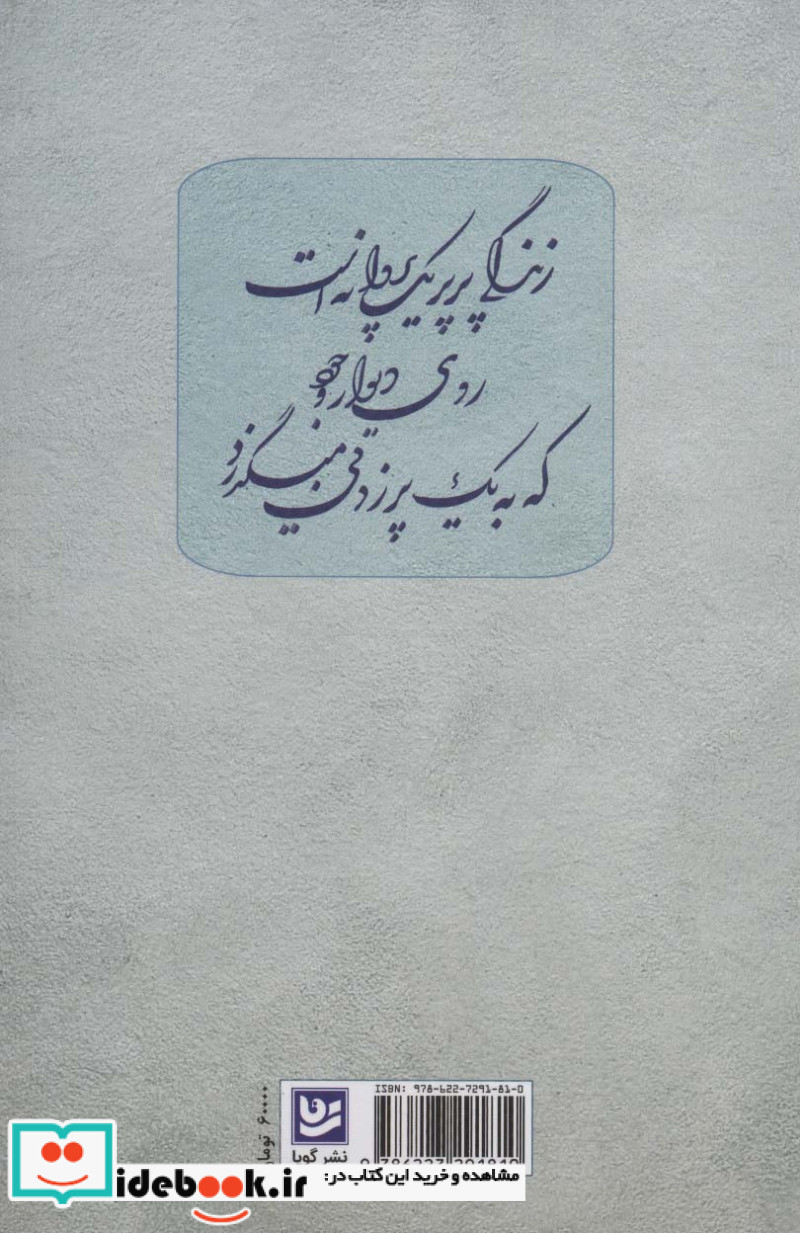 زندگی پرپر یک پروانه است
روی دیوار وجود
که به یک پر زدنی میگذرد
۶۰۰۰۰ تومان
ISBN: 978-622-7291-81-0
نشر گویا
مشاهده و خرید این کتاب در:
idebook.ir